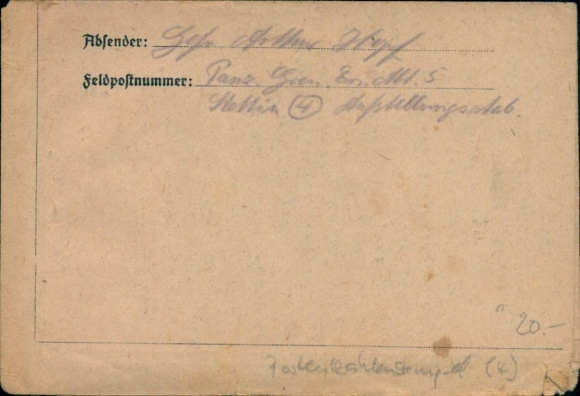 Absender: Gefr. Arthur Hopf
Feldpostnummer: Panz. Gren. Ers. Abt. 5
Stettin (4) Aufstellungsstab.
20.-
Postleitzahlenstempel (4)